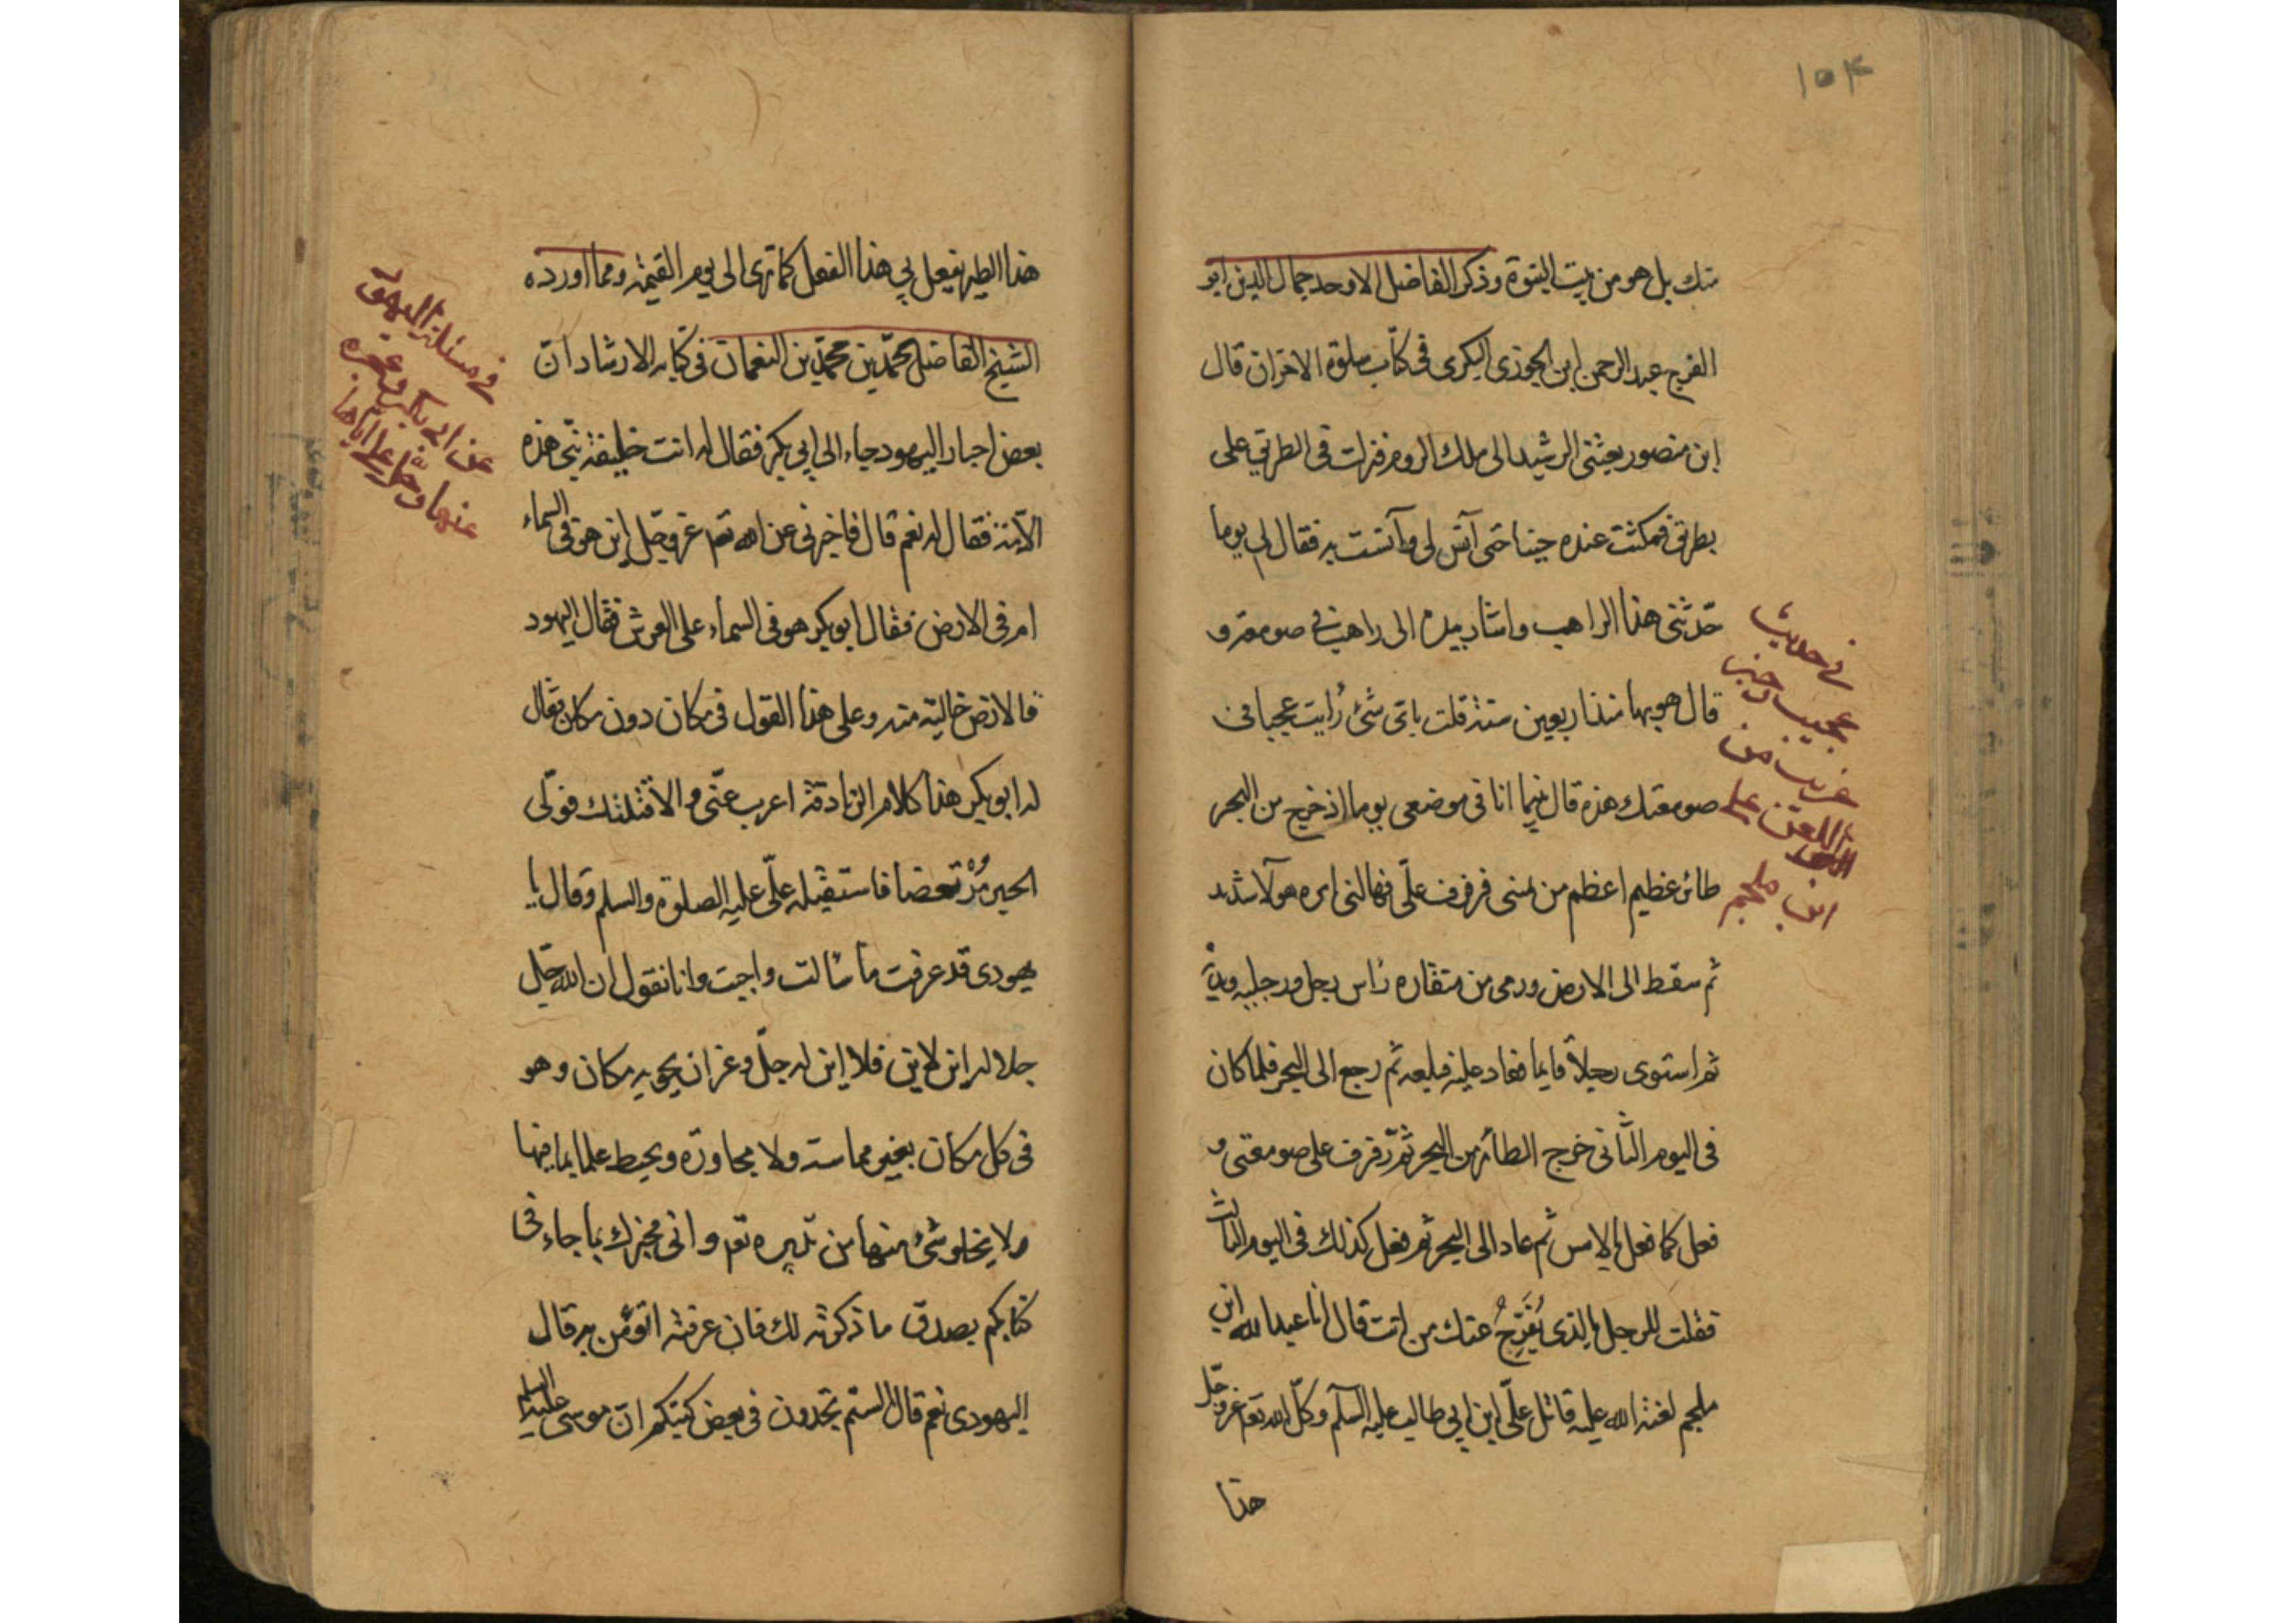 ١٥٤
منك بل هو من بيت النبوة وذكر الفاضل الاوحد جمال الدين ابو
الفرج عبد الرحمن ابن الجوزى البكرى فى كتاب سلوة الاحزان قال
ابن منصور بعثنى الرشيد الى ملك الروم فنزلت فى الطريق على
بطريق فمكثت عنده حينا حتى آنس لى وآنست به فقال لى يوما
حدّثنى هذا الراهب واشار بيده الى راهب فى صومعة و
قال هو بها منذ اربعين سنة قلت باى شئ رأيت عجبا فى
صومعتك هذه قال بينما انا فى موضعى يوما اذ خرج من البحر
طائر عظيم اعظم من فرفرف علىّ فهالنى امره هولا شديد
ثم سقط الى الارض ورمى من منقاره رأس رجل ورجليه ويديه
ثم استوى رجلاً قايما فعاد عليه فبلعه ثم رجع الى البحر فلما كان
فى اليوم الثانى خرج الطائر من البحر ثم رفرف على صومعتى و
فعل كما فعل بالامس ثم عاد الى البحر ثم فعل كذلك فى اليوم الثالث
فقلت للرجل بالذى يُفَرِّجُ عنك من انت قال انا عبد الله ابن
ملجم لعنة الله عليه قاتل علىّ ابن ابى طالب عليه السلم وكلّ الله تعم عز وجلّ
هذا
فى حديث
عجيب وخبر
غريب من
اللعين على
ابن ملجم
هذا الطير يفعل بى هذا الفعل كما ترى الى يوم القيمة ومما اورده
الشيخ الفاضل محمّد بن محمّد بن النعمان فى كتابه الارشاد انّ
بعض احبار اليهود جاء الى ابى بكر فقال له انت خليفة نبى هذه
الامّة فقال له نعم قال فاخبرنى عن الله تعم عز وجلّ اين هو فى السماء
ام فى الارض فقال ابو بكر هو فى السماء على العرش فقال اليهود
فالارض خالية منه وعلى هذا القول فى مكان دون مكان فقال
له ابو بكر هذا كلام الزنادقة اعزب عنّى والا قتلتك فولّى
الحبر مستقبله علىّ عليه الصلوة والسلم وقال يا
يهودى قد عرفت ما سالت واجبت وانا نقول ان الله جلّ
جلاله اين الاين فلا اين له جلّ وعز ان يحويه مكان وهو
فى كل مكان بغير مماسة ولا مجاورة ويحيط علما بما فيها
ولا يخلو شئ منها من تدبيره تعم وانى مخبرك بما جاء فى
كتابكم يصدق ما ذكرته لك فان عرفته اتؤمن به قال
اليهودى نعم قال الستم تجدون فى بعض كتبكم انّ موسى عليه السلم
فى مسئلة اليهود
عن ابى بكر وعجزه
عنها وحلّ علىّ اياها